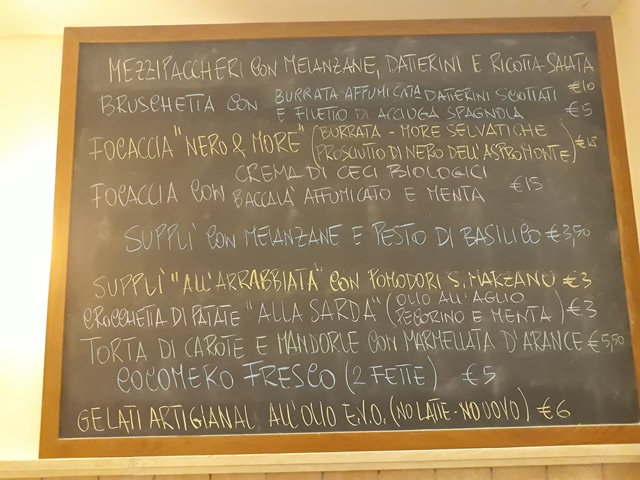 MEZZIPACCHERI CON MELANZANE, DATTERINI E RICOTTA SALATA
€10
BRUSCHETTA CON BURRATA AFFUMICATA DATTERINI SCOTTATI
E FILETTO DI ACCIUGA SPAGNOLA €5
FOCACCIA "NERO & MORE" (BURRATA - MORE SELVATICHE
PROSCIUTTO DI NERO DELL'ASPROMONTE)
CREMA DI CECI BIOLOGICI
FOCACCIA CON BACCALÀ AFFUMICATO E MENTA €15
SUPPLÌ CON MELANZANE E PESTO DI BASILICO €3,50
SUPPLÌ "ALL'ARRABBIATA" CON POMODORI S. MARZANO €3
CROCCHETTA DI PATATE "ALLA SARDA" (OLIO ALL'AGLIO
PECORINO E MENTA) €3
TORTA DI CAROTE E MANDORLE CON MARMELLATA D'ARANCE €5,50
COCOMERO FRESCO (2 FETTE) €5
GELATI ARTIGIANALI ALL'OLIO E.V.O. (NO LATTE - NO UOVO) €6